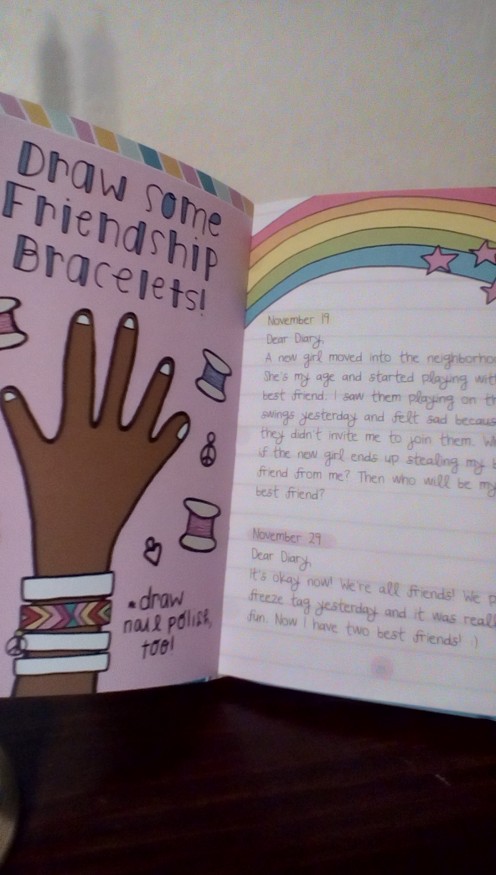 Draw some
Friendship
Bracelets!
*draw
nail polish,
too!
November 19
Dear Diary,
A new girl moved into the
She's my age and started playing
best friend. I saw them playing on
swings yesterday and felt sad
they didn't invite me to join them.
if the new girl ends up stealing my
friend from me? Then who will be
best friend?
November 29
Dear Diary,
It's okay now! We're all friends! We
freeze tag yesterday and it was
fun. Now I have two best friends! :)